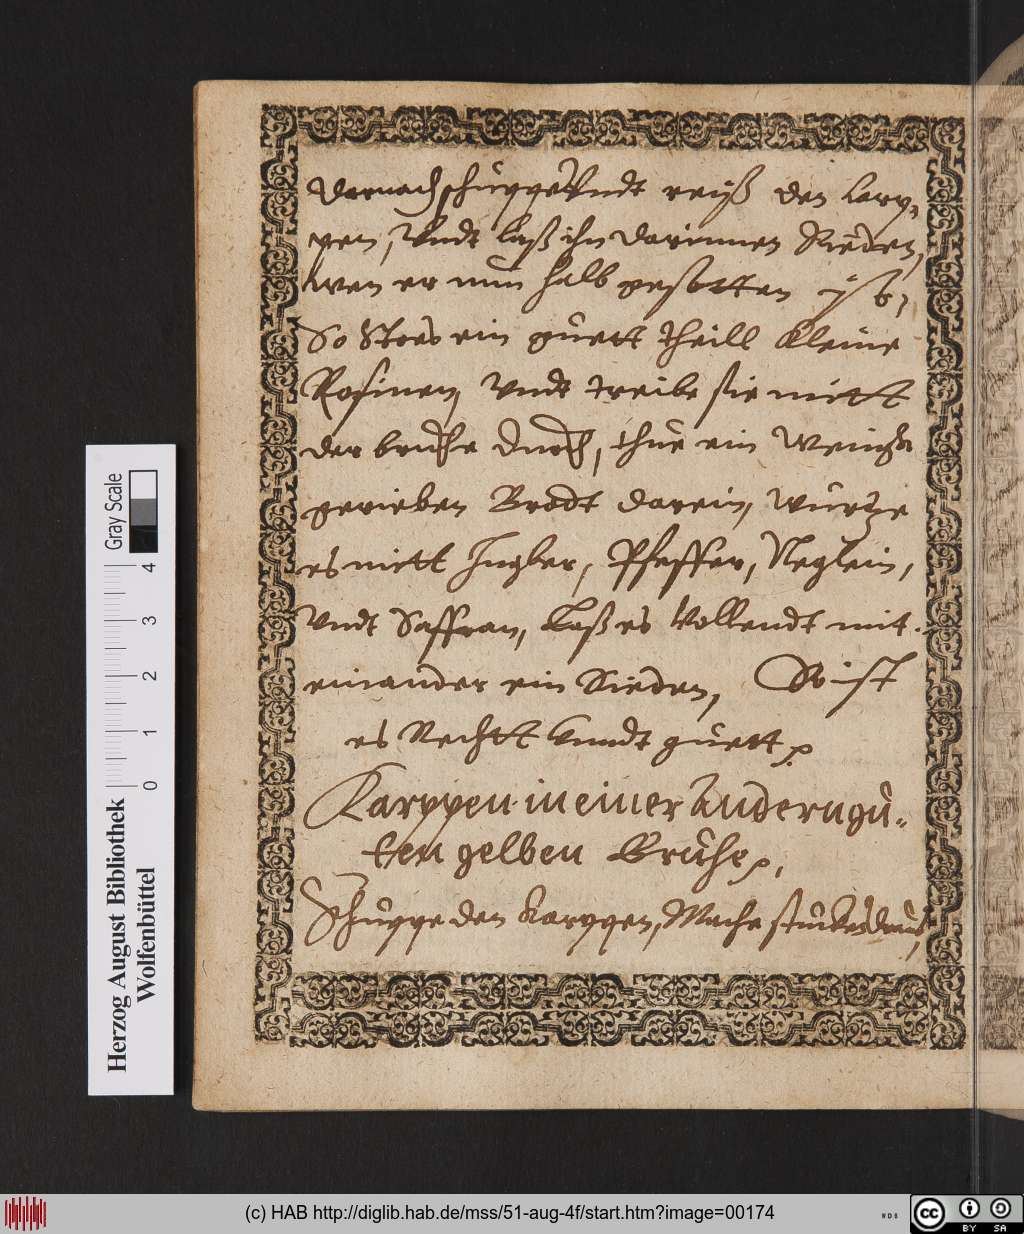 Darnach schuppe Vndt reiß den karp,
pen, Vndt laß ihn darinnen Sieden,
wen er nun halb gesotten ist,
So Stoes ein guett theill kleine
Rosinen, Vndt treibe sie mitt
der bruhe durch, thue ein Wenigk
gerieben Brodt darein, würtze
es mitt Ingber, Pfeffer, Neglein,
Vndt Saffran, Laß es Vollendt mit
einander ein Sieden, So ist
es Rechtt Vnndt guett.
Karppen in einer Andern gu-
ten gelben Bruhe.
Schuppe den karppen, Mache stucke draus,
Gray Scale
0 1 2 3 4
Herzog August Bibliothek
Wolfenbüttel
(c) HAB http://diglib.hab.de/mss/51-aug-4f/start.htm?image=00174
WDB
cc BY SA